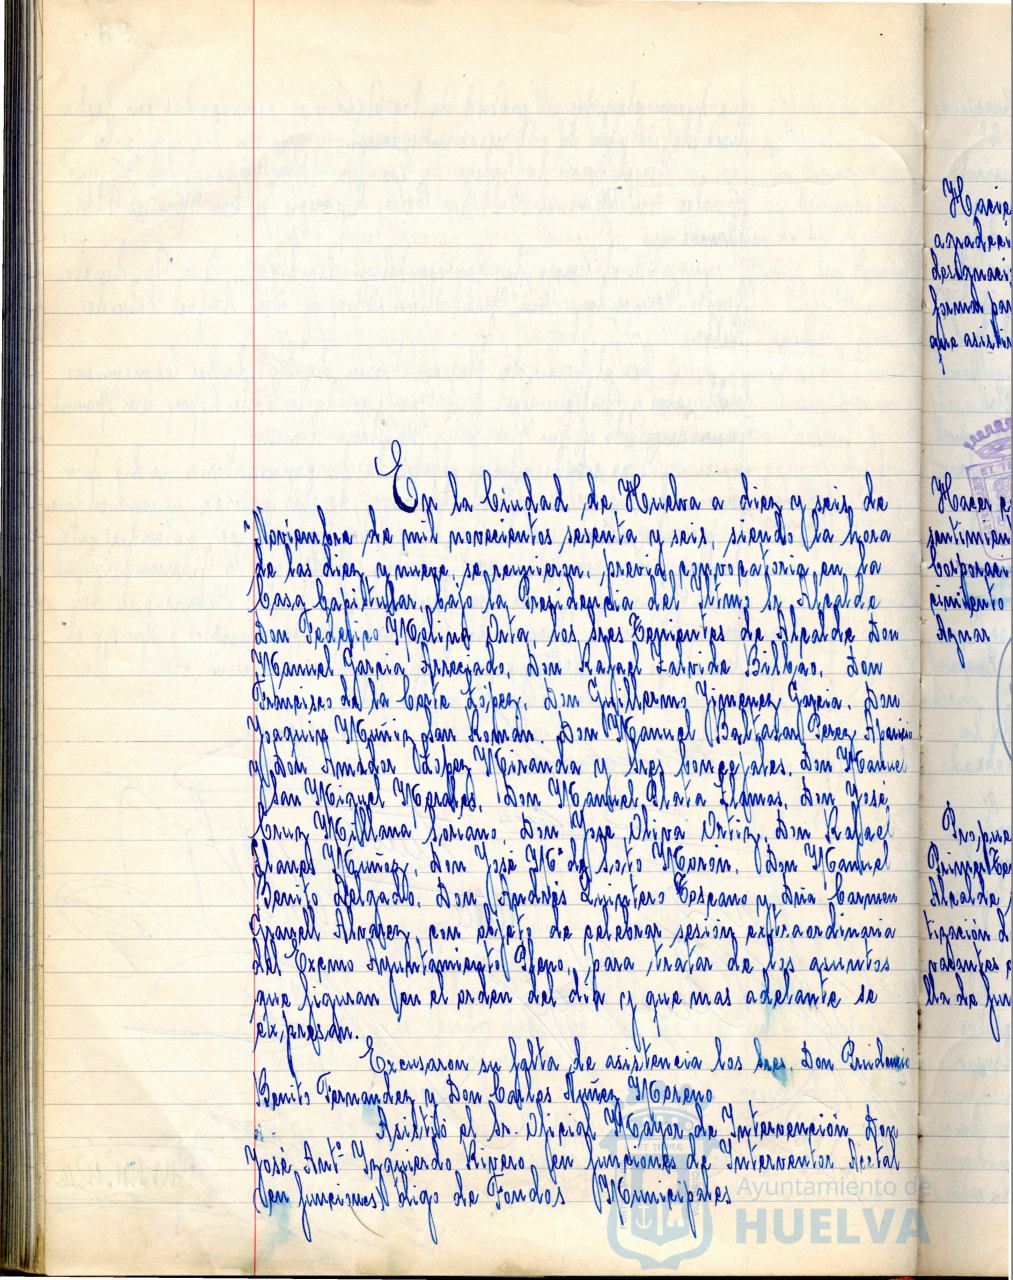 En la Ciudad de Huelva a diez y seis de
Noviembre de mil novecientos sesenta y seis, siendo la hora
de las diez y nueve, se reunieron, previa convocatoria en la
Casa Capitular, bajo la Presidencia del Iltmo Sr Alcalde
Don Federico Molina Orta, los sres Tenientes de Alcalde Don
Manuel Garcia Arreciado, Don Rafael Zalvide Bilbao, Don
Francisco de la Corte López, Don Guillermo Jimenez Garcia, Don
Joaquin Muñiz San Román, Don Manuel Baltasar Perez Aparicio
y Don Amador López Miranda y sres Concejales, Don Manuel
San Miguel Morales, Don Manuel Plata Llamas, Don José
Cruz Millana Soriano, Don José Oliva Ortiz, Don Rafael
Llanes Muñoz, Don José Mª de Soto Morón, Don Manuel
Benito Delgado, Don Andrés Quintero Toscano y Dña Carmen
Granell Alvarez, con objeto de celebrar sesión extraordinaria
del Excmo Ayuntamiento Pleno, para tratar de los asuntos
que figuran en el orden del dia y que mas adelante se
expresan.
Excusaron su falta de asistencia los Sres. Don Prudencio
Benito Fernandez y Don Carlos Nuñez Moreno
Asistió el Sr. Oficial Mayor de Intervención Don
José Antº Izquierdo Rivero, en funciones de Interventor Acctal
en funciones digo de Fondos Municipales
Ayuntamiento de
HUELVA
Hacie
agradeci
designaci
forma par
que asistir
Hacer c
sentimien
Corporaci
cimiento
Aznar
Propue
Alcalde
tización d
vacantes
lla de fun